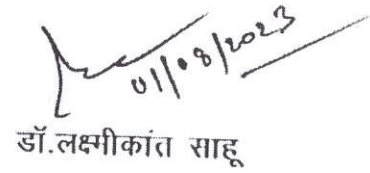 01/08/2023
डॉ.लक्ष्मीकांत साहू